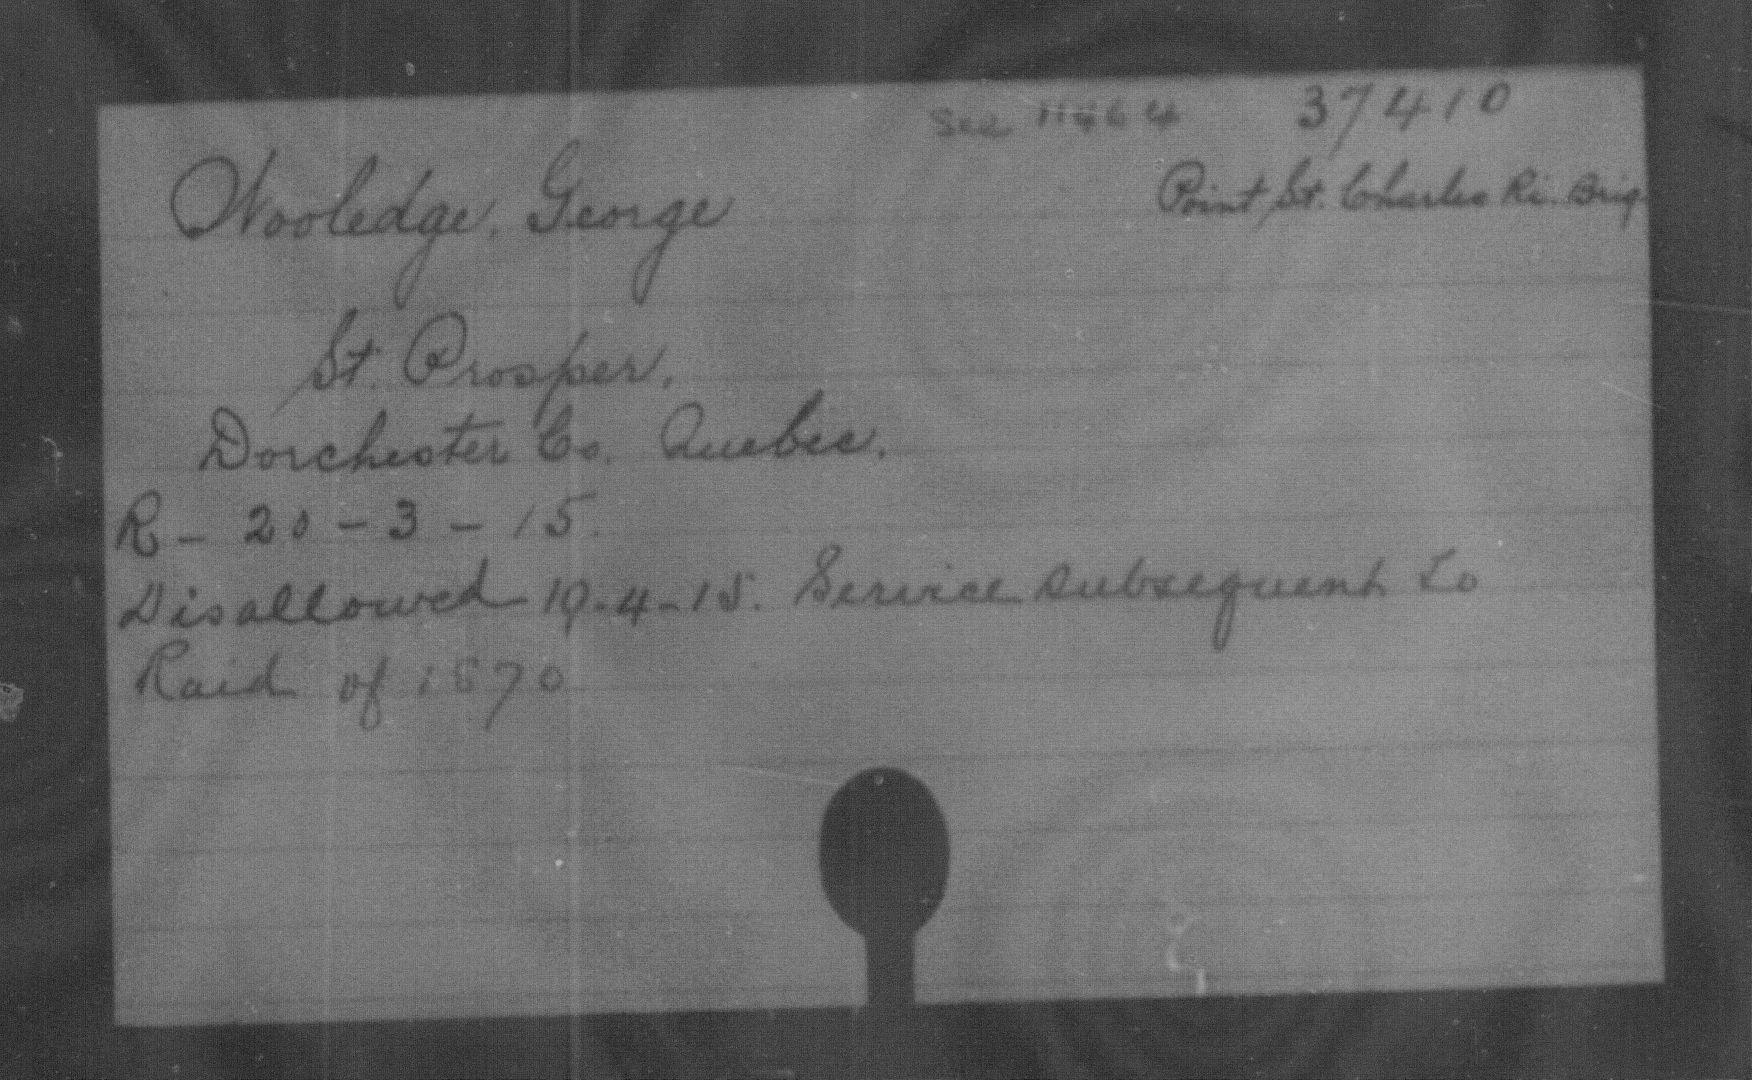 See 11464 37410
Wooledge, George Point St. Charles Ri. Brig.
St. Prosper,
Dorchester Co. Quebec.
R - 20 - 3 - 15.
Disallowed 19-4-15. Service subsequent to
Raid of 1870